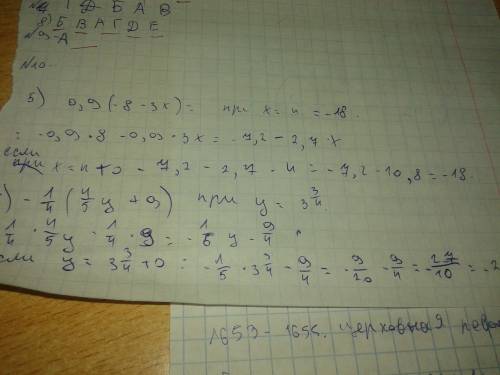 8) Б В А Г Д Е
№9 - А
№10.
Б) 0,9(-8-3x)= при x=4 =-18.
= -0,9·8-0,9·3x= -7,2-2,7·x
если x=4 то -7,2-2,7·4=-7,2-10,8=-18.
) -1/4(4/5y+9) при y=3 3/4.
1/4·4/5y-1/4·9=-1/5y-9/4
если y=3 3/4 то -1/5·3 3/4-9/4=-9/20-9/4=-27/10=-2
1653-1655. церковная